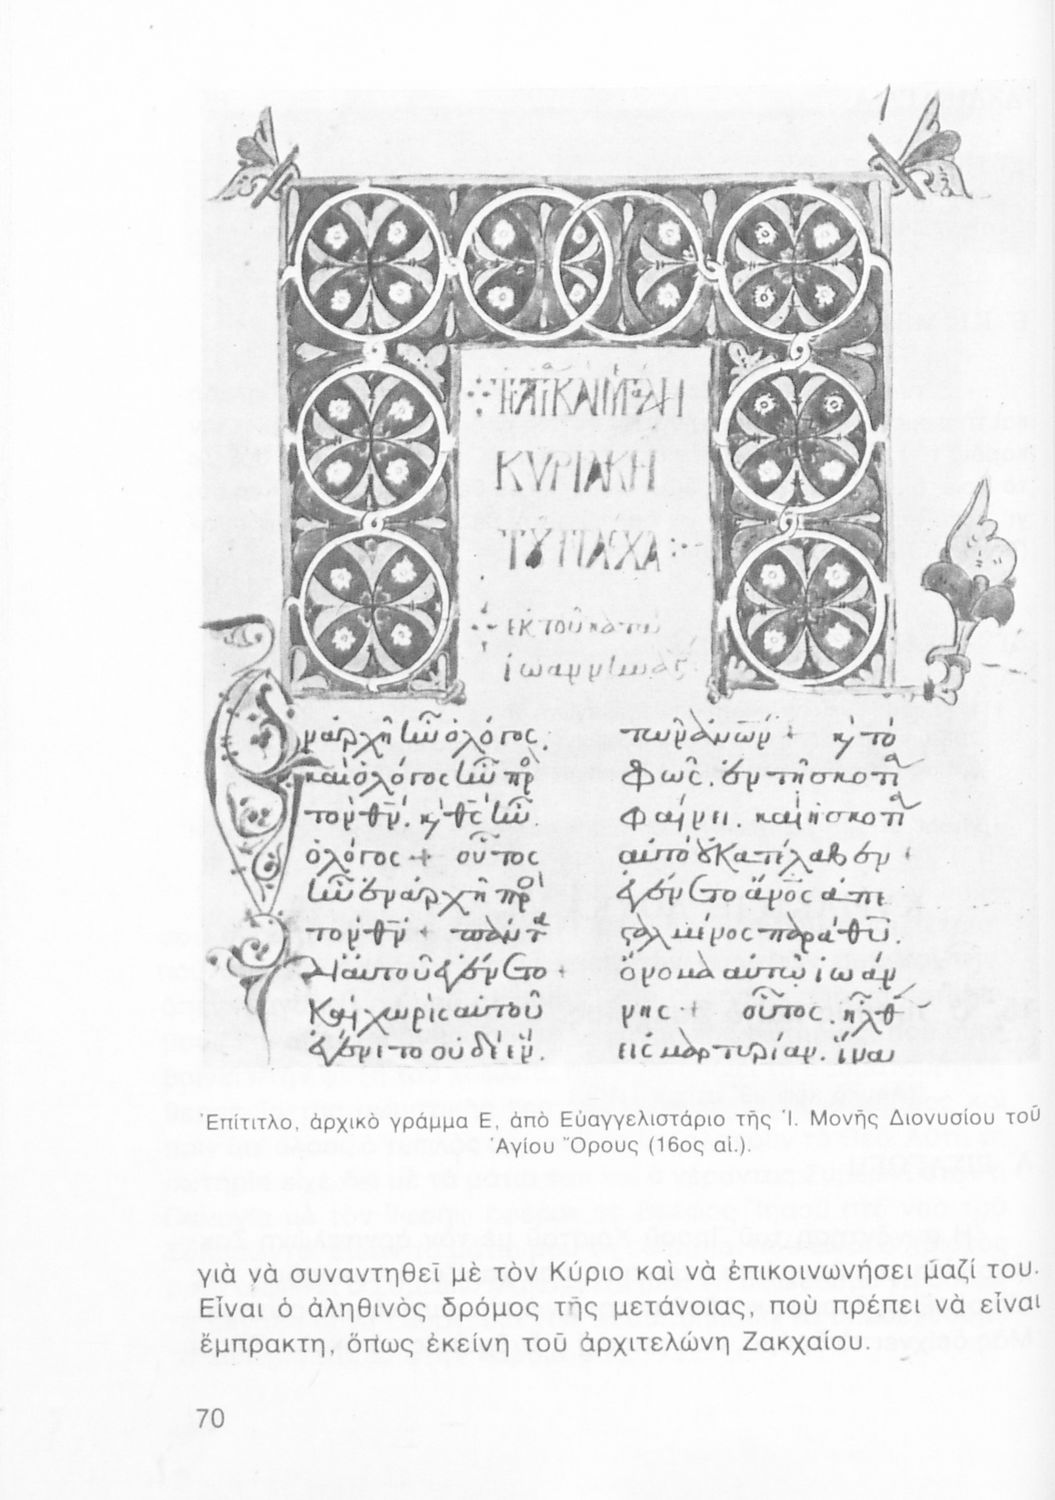 Τῌ ἉΓΙ ΚΑΙ ΜΕΓΑΛΗ
ΚΥΡΙΑΚΗ
ΤΟΥ ΠΑΣΧΑ
ἐκ τοῦ κατὰ
ἰωάννην
Ἐν ἀρχῆ ἦν ὁ λόγος.
καὶ ὁ λόγος ἦν πρὸ
τὸν θν. κ θς ἦν
ὁ λόγος + οὗτος
ἦν ἐν ἀρχῆ πρὸ
τὸν θν + πάντα
δι αὐτοῦ ἐγένετο +
καὶ χωρὶς αὐτοῦ
ἐγένετο οὐδὲ ἕν.
τῶν ἀνων + κ τὸ
φῶς. ἐν τῆ σκοτία
φαίνει. καὶ ἡ σκοτία
αὐτὸ οὐ κατέλαβεν +
ἐγένετο ἄνος ἀπε
σταλμένος παρὰ θυ.
ὄνομα αὐτῶ ἰωάν
νης + οὗτος. ἦλθε
εἰς μαρτυρίαν. ἵνα
Ἐπίτιτλο, ἀρχικὸ γράμμα Ε, ἀπὸ Εὐαγγελιστάριο τῆς Ἱ. Μονῆς Διονυσίου τοῦ
Ἁγίου Ὄρους (16ος αἰ.).
γιὰ νὰ συναντηθεῖ μὲ τὸν Κύριο καὶ νὰ ἐπικοινωνήσει μαζί του.
Εἶναι ὁ ἀληθινὸς δρόμος τῆς μετάνοιας, ποὺ πρέπει νὰ εἶναι
ἔμπρακτη, ὅπως ἐκείνη τοῦ ἀρχιτελώνη Ζακχαίου.
70